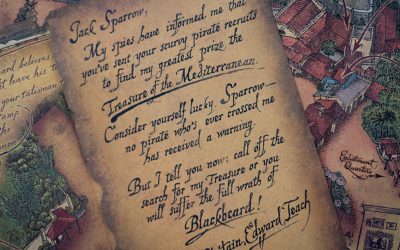 Jack Sparrow,
My spies have informed me that
you've sent your scurvy pirate recruits
to find my greatest prize the
Treasure of the Mediterranean.
Consider yourself lucky, Sparrow—
no pirate who's ever crossed me
has received a warning.
But I tell you now: call off the
search for my Treasure or you
will suffer the full wrath of
Blackbeard!
Captain Edward Teach
ard believes
t have his
your talisman
amp
n the
Enlistment
Quarters